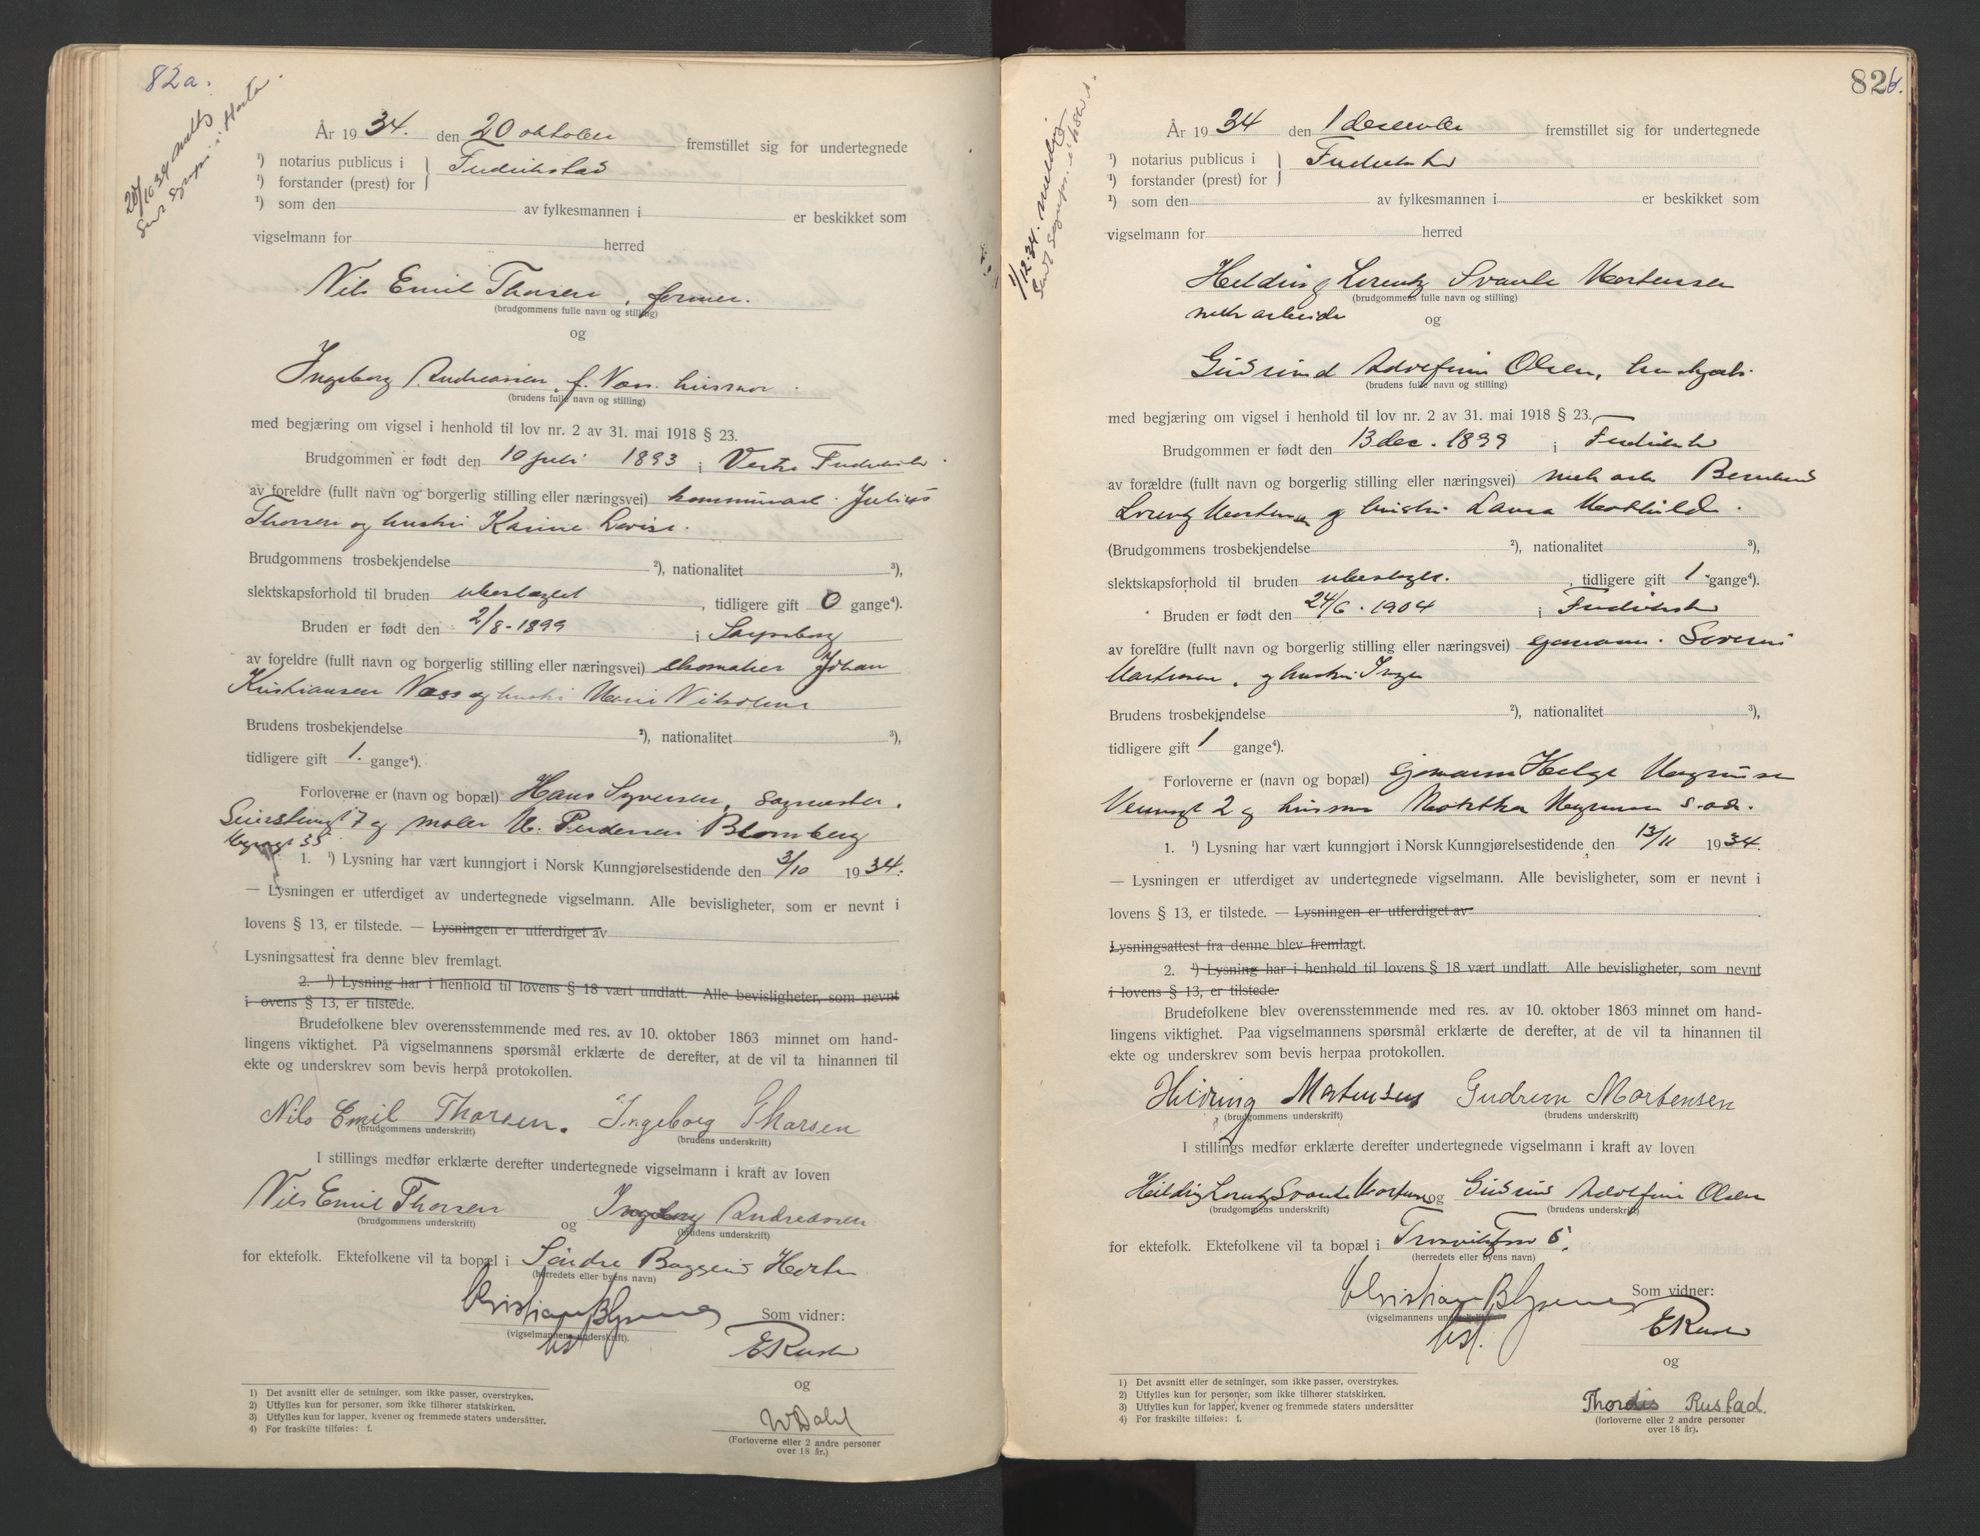 82a.
20/10 34 meldt
År 1934. den 20 oktober fremstillet sig for undertegnede
¹) notarius publicus i } Fredrikstad
¹) forstander (prest) for
¹) som den av fylkesmannen i er beskikket som
vigselmann for herred
Nils Emil Thorsen, former.
(brudgommens fulle navn og stilling)
og
Ingeborg Andreassen, f. Næss. husmor.
(brudens fulle navn og stilling)
med begjæring om vigsel i henhold til lov nr. 2 av 31. mai 1918 § 23.
Brudgommen er født den 10 juli 1893 i Vestre Fredrikstad
av foreldre (fullt navn og borgerlig stilling eller næringsvei) kommunearb. Julius
Thorsen og hustru Karine Lovise.
Brudgommens trosbekjendelse ²), nationalitet ³),
slektskapsforhold til bruden ubeslægtet, tidligere gift 0 gange⁴).
Bruden er født den 2/8-1899 i Sarpsborg
av foreldre (fullt navn og borgerlig stilling eller næringsvei) skomaker Johan
Kristiansen Næss og hustru Marie Nikoline
Brudens trosbekjendelse ²), nationalitet ³),
tidligere gift 1. gange⁴).
Forloverne er (navn og bopæl) Hans Syversen, sagmester,
og maler M. Pedersen Blomberg
1. ¹) Lysning har vært kunngjort i Norsk Kunngjørelsestidende den 3/10 1934.
— Lysningen er utferdiget av undertegnede vigselmann. Alle bevisligheter, som er nevnt i
lovens § 13, er tilstede. — Lysningen er utferdiget av
Lysningsattest fra denne blev fremlagt.
2. ¹) Lysning har i henhold til lovens § 18 vært undlatt. Alle bevisligheter, som nevnt
i ovens § 13, er tilstede.
Brudefolkene blev overensstemmende med res. av 10. oktober 1863 minnet om hand-
lingens viktighet. På vigselmannens spørsmål erklærte de derefter, at de vil ta hinannen til
ekte og underskrev som bevis herpå protokollen.
Nils Emil Thorsen. Ingeborg Thorsen
(brudgommens underskrift) (brudens underskrift)
I stillings medfør erklærte derefter undertegnede vigselmann i kraft av loven
Nils Emil Thorsen og Ingeborg Andreassen
(brudgommens underskrift) (brudens underskrift)
for ektefolk. Ektefolkene vil ta bopæl i Søndre Baggerud Horten
(herredets eller byens navn)
(vigselmannens underskrift).
Som vidner:
og
W Dahl
(Forloverne eller 2 andre personer
over 18 år.)
1) Det avsnitt eller de setninger, som ikke passer, overstrykes.
2) Utfylles kun for personer, som ikke tilhører statskirken.
3) Utfylles kun for lapper, kvener og fremmede staters undersåtter.
4) For fraskilte tilføies: f.
82b.
1/12.34. meldt
År 1934 den 1 december fremstillet sig for undertegnede
¹) notarius publicus i } Fredrikstad
¹) forstander (prest) for
¹) som den av fylkesmannen i er beskikket som
vigselmann for herred
Hilding Lorentz Svante Mortensen
(brudgommens fulle navn og stilling)
mek arbeider og
Gudrund Adolfine Olsen, hushjelp.
(brudens fulle navn og stilling)
med begjæring om vigsel i henhold til lov nr. 2 av 31. mai 1918 § 23.
Brudgommen er født den 13 dec. 1899 i Fredrikstad
av forældre (fullt navn og borgerlig stilling eller næringsvei) mek arb Bernhard
Lorentz Mortensen og hustru Laura Mathilde.
(Brudgommens trosbekjendelse ²), nationalitet ³),
slektskapsforhold til bruden ubeslægtet, tidligere gift 1 gange⁴).
Bruden er født den 24/6. 1904 i Fredrikstad
av foreldre (fullt navn og borgerlig stilling eller næringsvei) sjømann Severin
og hustru Inga
Brudens trosbekjendelse ²), nationalitet ³),
tidligere gift 1 gange⁴).
Forloverne er (navn og bopæl) sjømann Helge Magnussen
2 og husmor Magnussen s. sd.
1. ¹) Lysning har vært kunngjort i Norsk Kunngjørelsestidende den 13/11 1934.
— Lysningen er utferdiget av undertegnede vigselmann. Alle bevisligheter, som er nevnt i
lovens § 13, er tilstede. — Lysningen er utferdiget av
Lysningsattest fra denne blev fremlagt.
2. ¹) Lysning har i henhold til lovens § 18 vært undlatt. Alle bevisligheter, som nevnt
i lovens § 13, er tilstede.
Brudefolkene blev overensstemmende med res. av 10. oktober 1863 minnet om hand-
lingens viktighet. Paa vigselmannens spørsmål erklærte de derefter, at de vil ta hinannen til
ekte og underskrev som bevis herpaa protokollen.
Hilding Mortensen Gudrun Mortensen
(brudgommens underskrift) (brudens underskrift)
I stillings medfør erklærte derefter undertegnede vigselmann i kraft av loven
Hilding Lorentz Svante Mortensen og Gudrun Adolfine Olsen
(brudgommens underskrift) (brudens underskrift)
for ektefolk. Ektefolkene vil ta bopæl i
(herredets eller byens navn)
(vigselmannens underskrift)
Som vidner:
og
Thordis Rustad.
(forloverne eller 2 andre personer
over 18 år).
1) Det avsnitt eller de setninger, som ikke passer, overstrykes.
2) Utfylles kun for personer, som ikke tilhører statskirken.
3) Utfylles kun for lapper, kvener og fremmede staters undersåtter
4) For fraskilte tilføies: f.